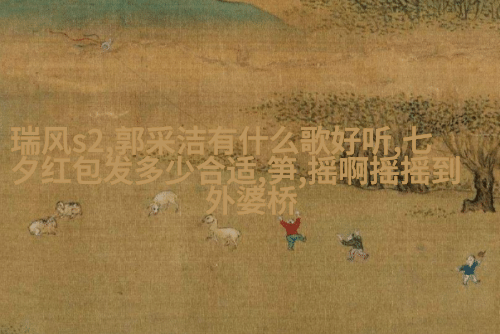 瑞风s2,郭采洁有什么歌好听,七
夕红包发多少合适,笋,摇啊摇摇到
外婆桥